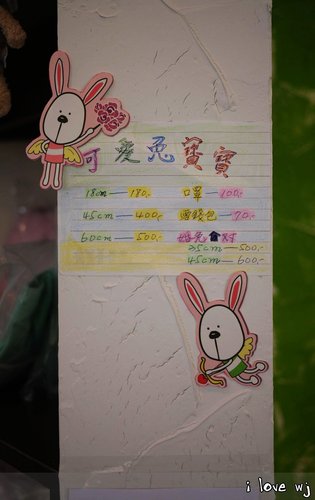 可愛兔寶寶
18cm—180.- 口罩—100.-
45cm—400.- 零錢包—70.-
60cm—500.- 婚兔 對
35cm—500.-
45cm—600.-
i love wj